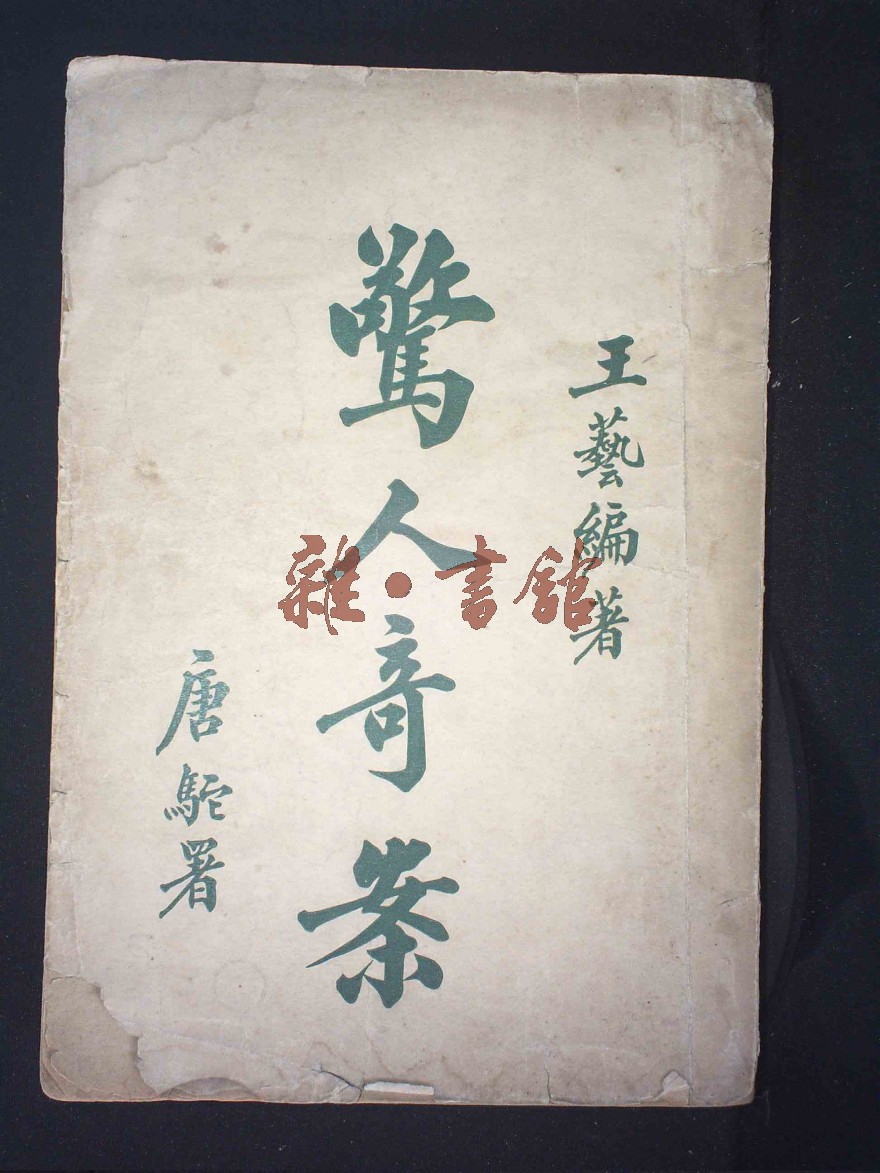 王藝編著
驚人奇案
唐駝署
雜·書館